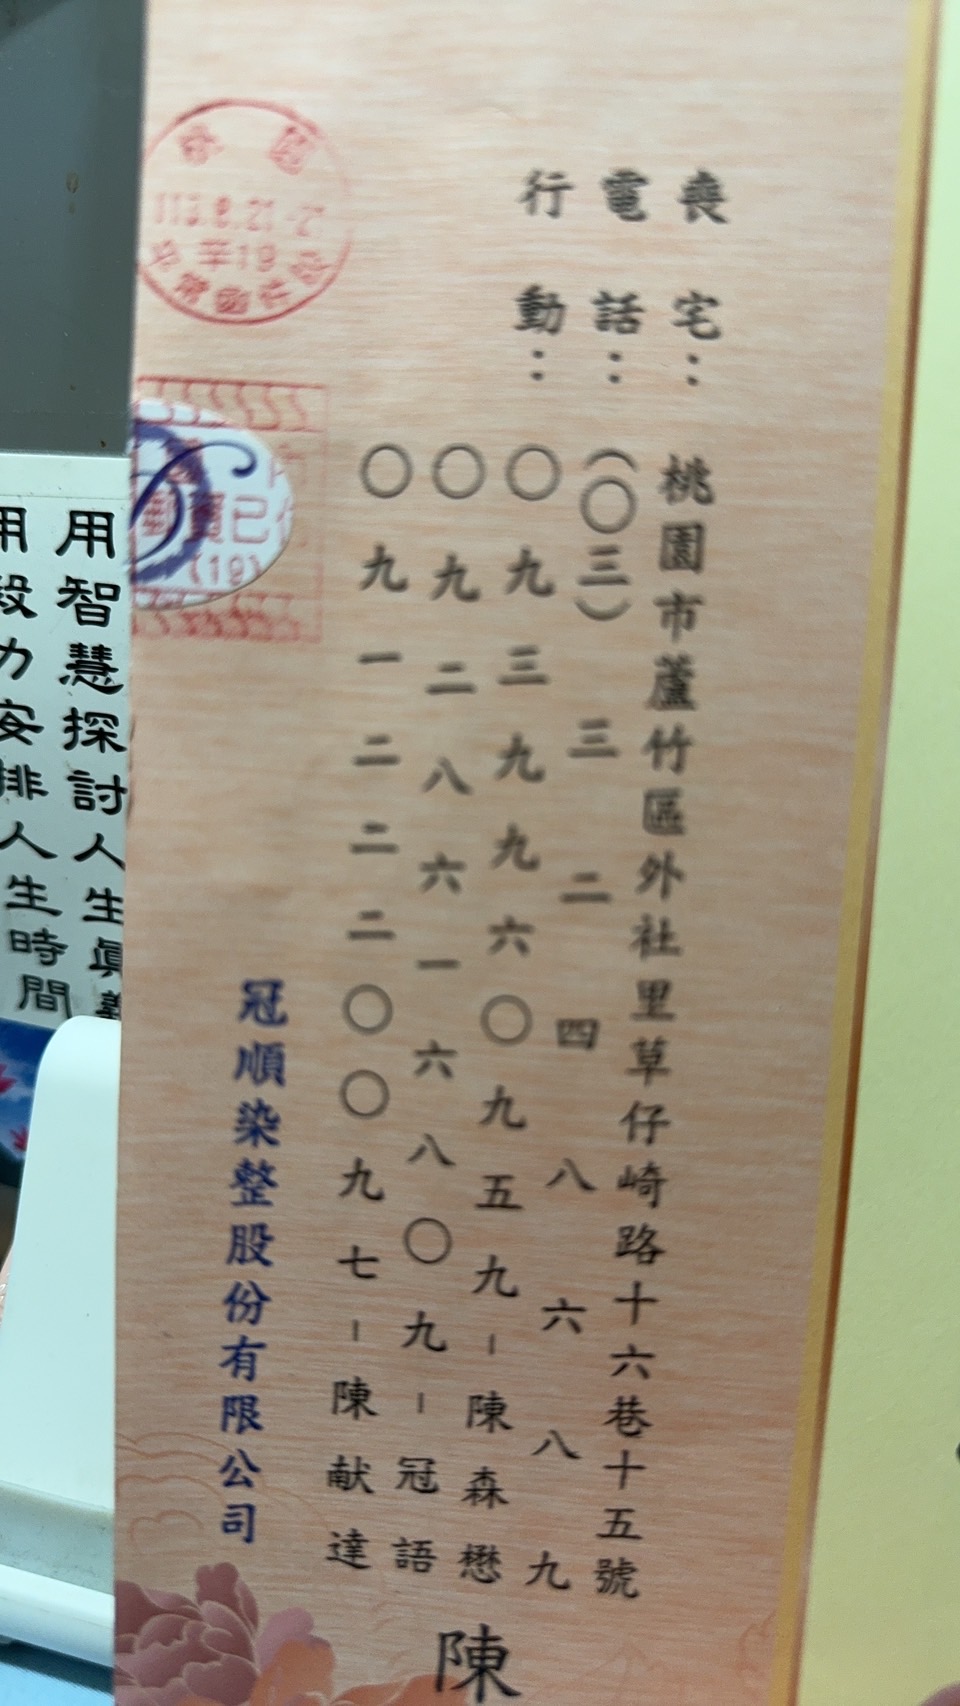 喪宅：桃園市蘆竹區外社里草仔崎路十六巷十五號
電話：（〇三）三二四八六八九
行動：〇九三九九六〇九五九－陳森懋
〇九二八六一六八〇九－冠語
〇九一二二二〇〇九七－陳献達
冠順染整股份有限公司
陳
113.8.21
辛19
(19)
用智慧探討人生真
用毅力安排人生時間